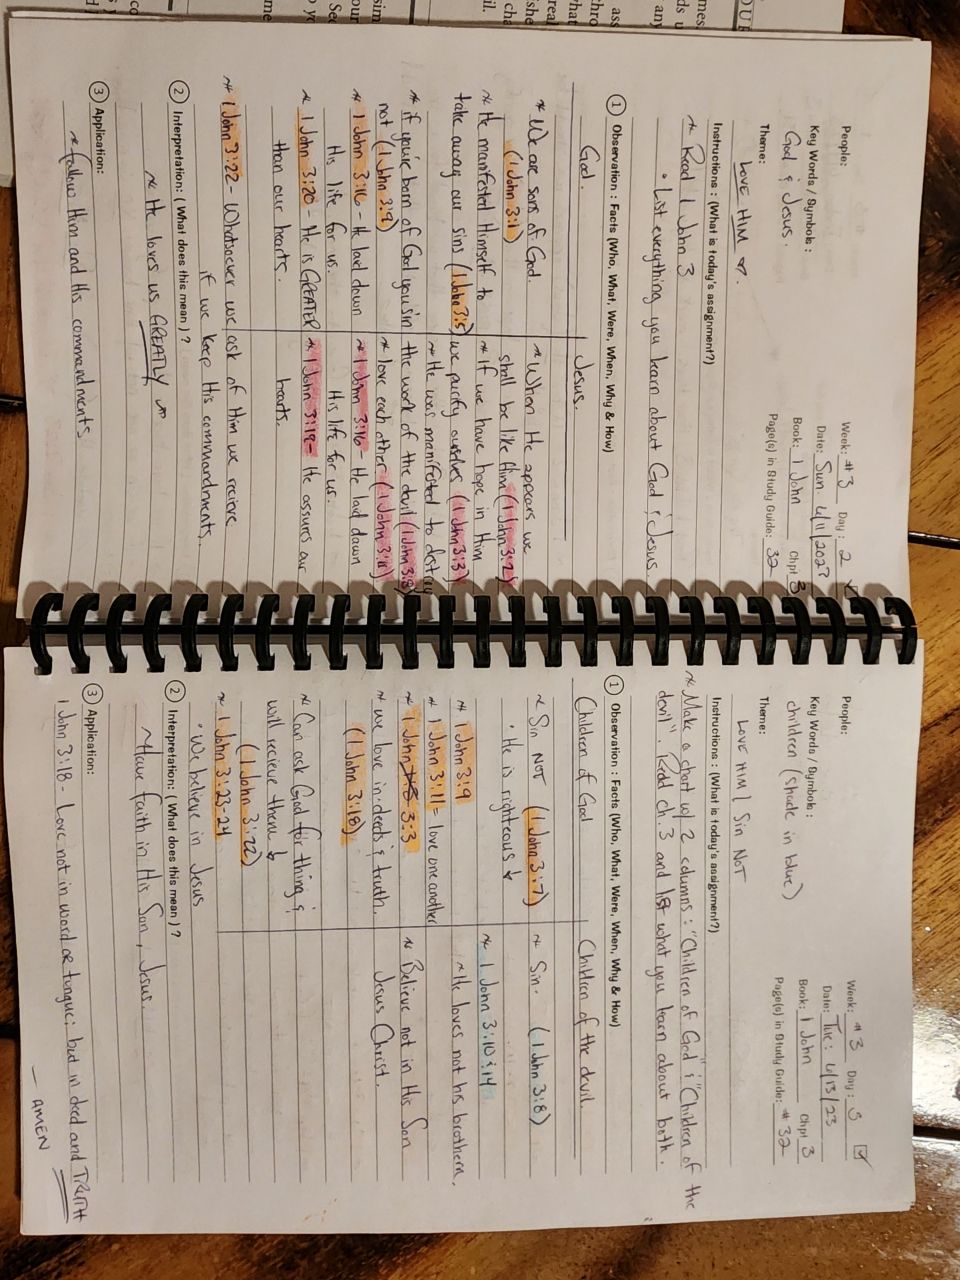 People:
Week: #3 Day: 2
Key Words / Symbols:
Date: Sun. 4/11/2023
God & Jesus.
Book: 1 John Chpt 3
Theme:
Page(s) in Study Guide: 32
LOVE HIM
Instructions: (What is today's assignment?)
~ Read 1 John 3
• List everything you learn about God & Jesus.
① Observation : Facts (Who, What, Were, When, Why & How)
God.
~ We are sons of God.
(1 John 3:1)
~ He manifested Himself to
take away our sins (1 John 3:5)
~ if you're born of God you sin
not (1 John 3:9)
~ 1 John 3:16 - He laid down
His life for us.
~ 1 John 3:20 - He is GREATER
than our hearts.
Jesus.
~ When He appears we
shall be like Him (1 John 3:2)
~ If we have hope in Him
we purify ourselves (1 John 3:3)
~ He was manifested to destroy
the work of the devil (1 John 3:8)
~ love each other (1 John 3:11)
~ 1 John 3:16 - He laid down
His life for us.
~ 1 John 3:19 - He assures our
hearts.
~ 1 John 3:22 - Whatsoever we ask of Him we recieve
if we keep His commandments.
② Interpretation: ( What does this mean ) ?
~ He loves us GREATLY
③ Application:
~ follow Him and His commandments
People:
Week: #3 Day: 3
Key Words / Symbols:
Date: Tue: 4/13/23
children (shade in blue)
Book: 1 John Chpt 3
Theme:
Page(s) in Study Guide: #32
LOVE HIM | Sin NOT
Instructions: (What is today's assignment?)
~ Make a chart w/ 2 columns: "Children of God" & "Children of the
devil". Read ch. 3 and list what you learn about both.
① Observation : Facts (Who, What, Were, When, Why & How)
Children of God
~ Sin NOT (1 John 3:7)
• He is righteous
~ 1 John 3:9
~ 1 John 3:11 = love one another
~ 1 John 3:3
~ we love in deeds & truth.
(1 John 3:18)
~ Can ask God for thing &
will recieve them
(1 John 3:22)
~ 1 John 3:23-24
• We believe in Jesus
Children of the devil.
~ Sin. (1 John 3:8)
~ 1 John 3:10 & 14
~ He loves not his brothern,
~ Believe not in His Son
Jesus Christ.
② Interpretation: ( What does this mean ) ?
~ Have faith in His Son, Jesus.
③ Application:
1 John 3:18 - Love not in word or tongue; but in deed and TRUTH
— AMEN